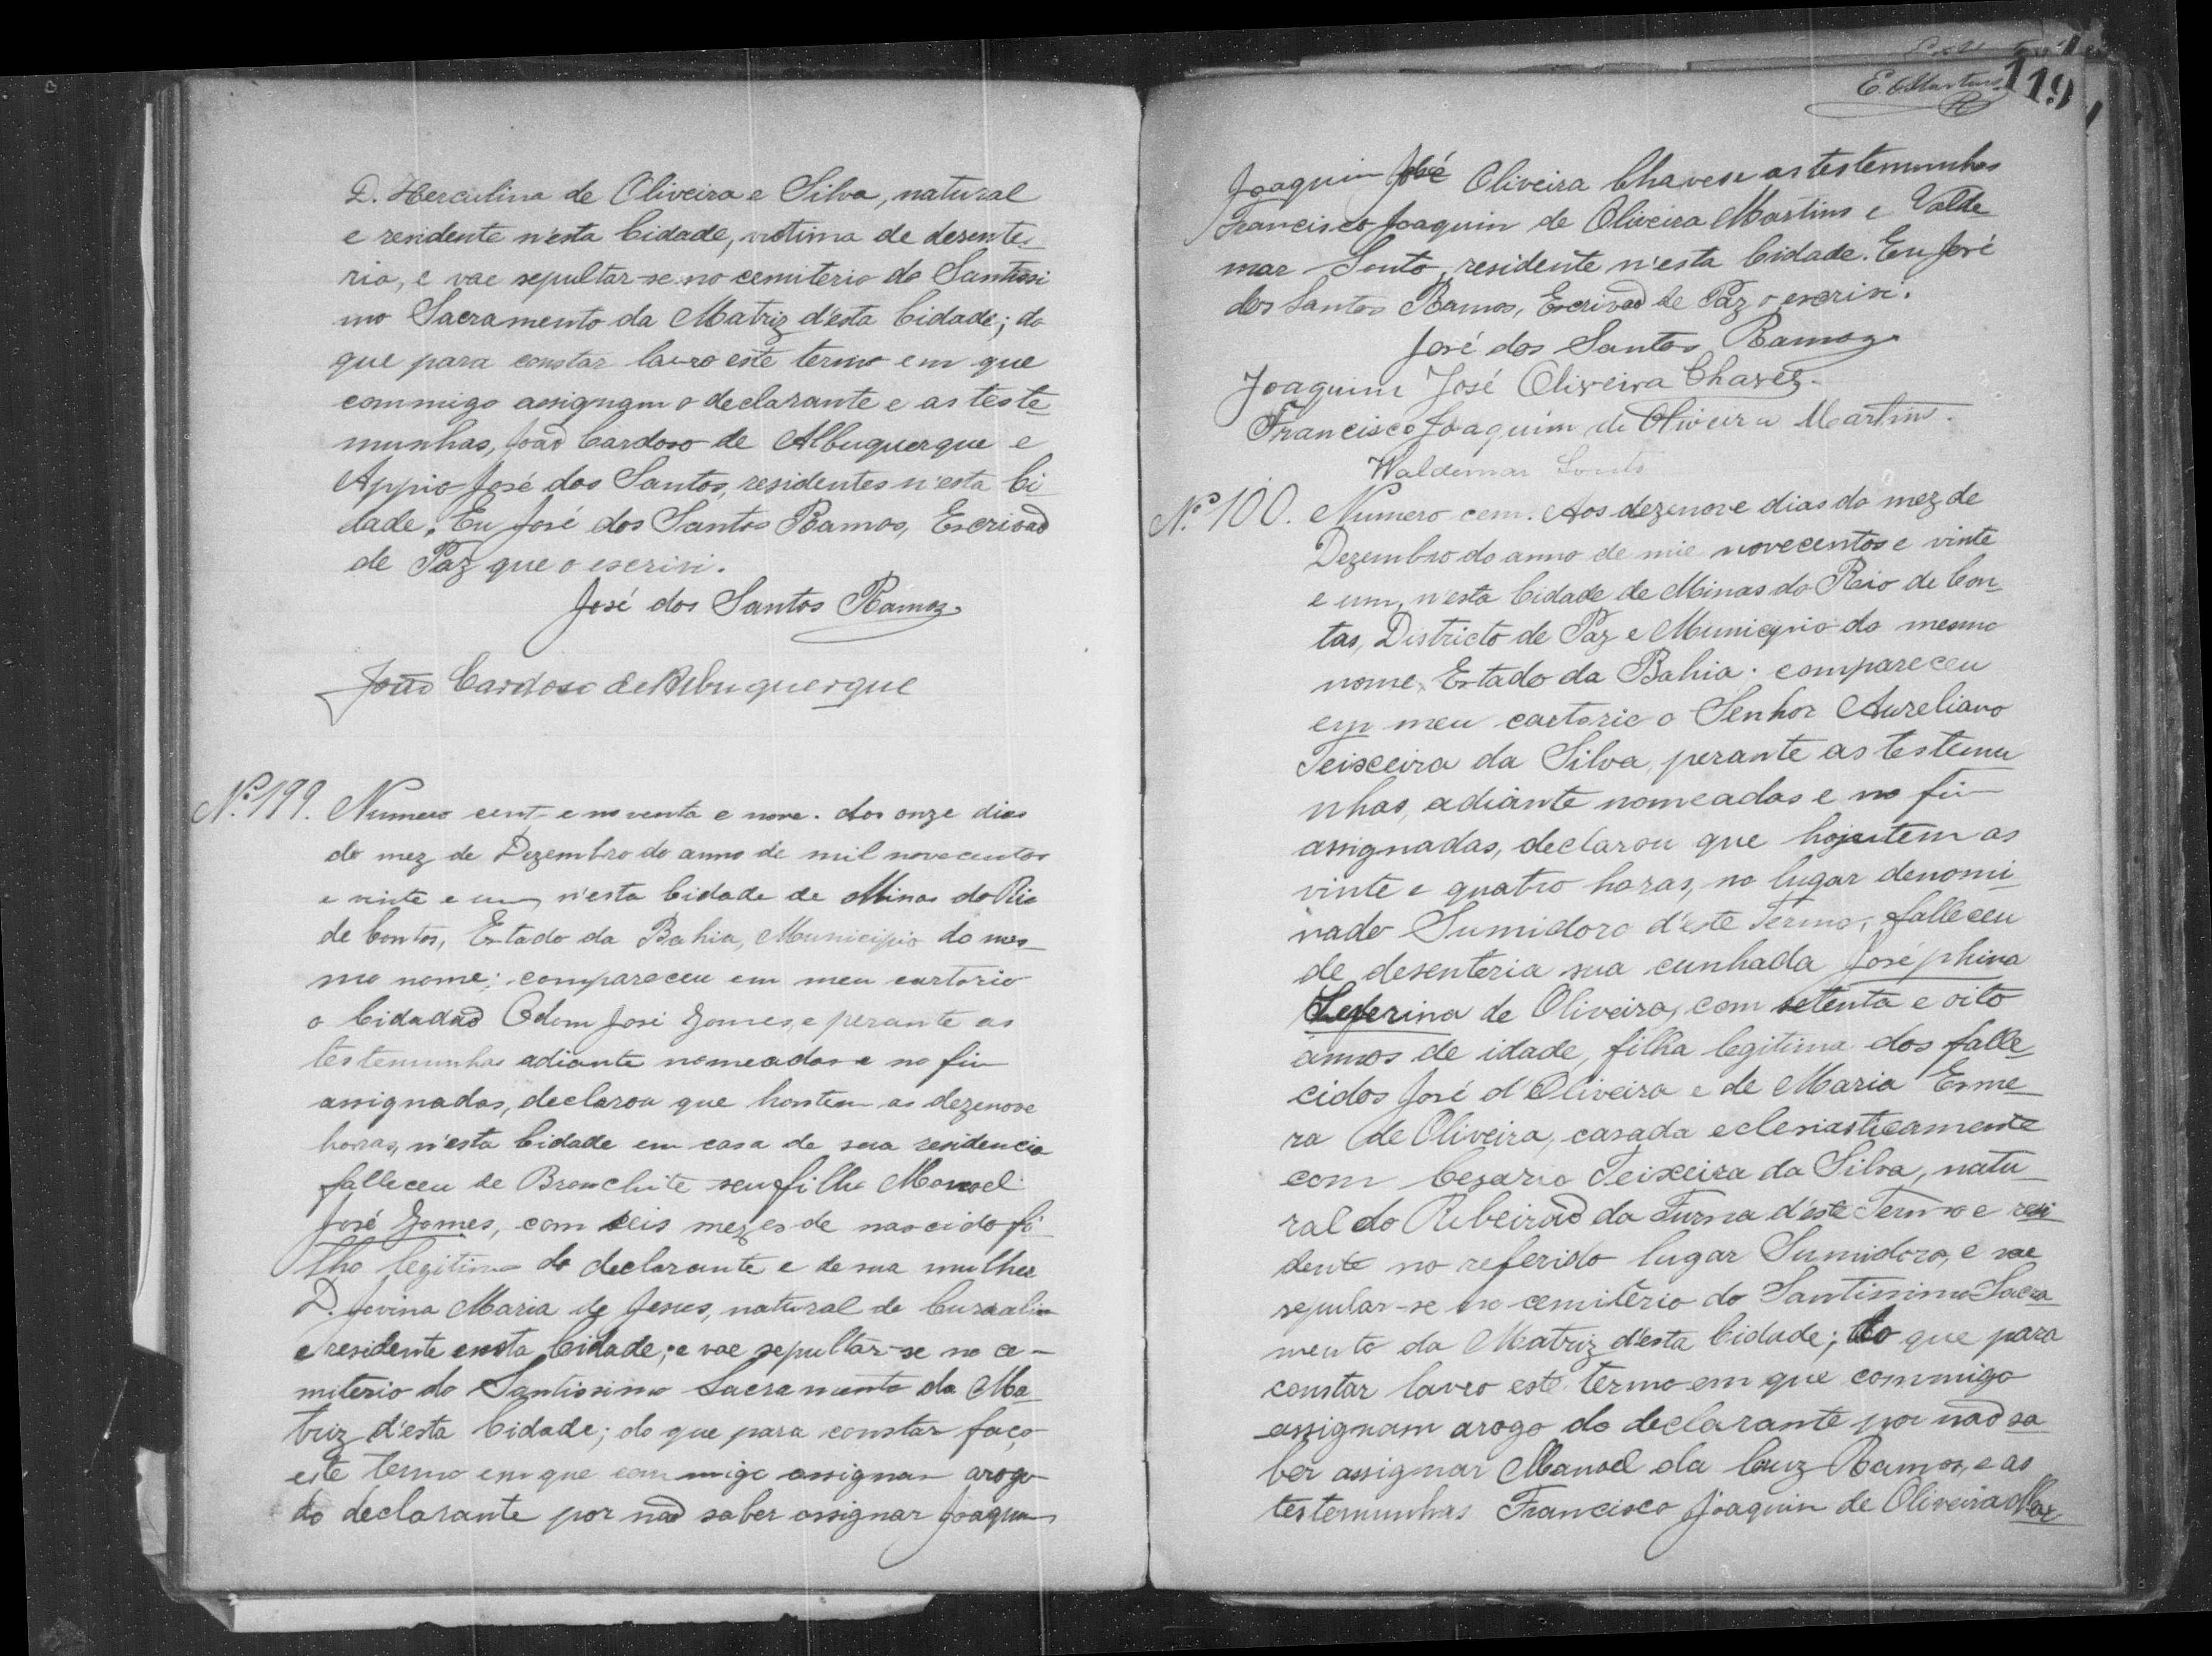 D. Herculina de Oliveira e Silva, natural
e residente n'esta Cidade, victima de desente_
ria, e vae sepultar-se no cemiterio do Santissi
mo Sacramento da Matriz d'esta Cidade; do
que para constar lavro este termo em que
commigo assignam o declarante e as teste_
munhas, João Cardoso de Albuquerque e
Appio José dos Santos, residentes n'esta Ci_
dade. Eu José dos Santos Ramos, Escrivaõ
de Paz que o escrivi.
José dos Santos Ramos
João Cardoso de Albuquerque
Nº 199. Numero cento e noventa e nove. Aos onze dias
do mez de Dezembro do anno de mil novecentos
e vinte e um, n'esta Cidade de Minas do Rio
de Contas, Estado da Bahia, Municipio do mes_
mo nome; compareceu em meu cartorio
o Cidadaõ Odom José Gomes, e perante as
testemunhas adiante nomeadas e no fim
assignadas, declarou que hontem as dezenove
horas, n'esta Cidade em casa de sua residencia
falleceu de Bronchite seu filho Manoel
José Gomes, com seis mezes de nascido fi_
lho legitimo do declarante e de sua mulher
D. Jovina Maria de Jesus, natural de
e residente nesta Cidade; e vae sepultar-se no ce_
miterio do Santissimo Sacramento da Ma_
triz d'esta Cidade; do que para constar faço
este termo em que commigo assignam arogo
do declarante por naõ saber assignar Joaquim
E. Martins
119
Joaquim José Oliveira Chaves e as testemunhas
Francisco Joaquim de Oliveira Martins e Valde_
mar Souto, residente n'esta Cidade. Eu José
dos Santos Ramos, Escrivaõ de Paz o escrivi.
José dos Santos Ramos
Joaquim José Oliveira Chaves.
Francisco Joaquim de Oliveira Martins.
Waldemar Souto
Nº 100. Numero cem. Aos dezenove dias do mez de
Dezembro do anno de mil novecentos e vinte
e um, n'esta Cidade de Minas do Rio de Con_
tas, Districto de Paz e Municipio do mesmo
nome, Estado da Bahia; compareceu
em meu cartorio o Senhor Aureliano
Teixeira da Silva, perante as testemu
nhas, adiante nomeadas e no fim
assignadas, declarou que hontem as
vinte e quatro horas, no lugar denomi_
nado Sumidoro d'este Termo, falleceu
de desenteria sua cunhada Joséphina
de Oliveira, com setenta e oito
annos de idade, filha legitima dos falle_
cidos José d'Oliveira e de Maria Esme_
ra de Oliveira, casada eclesiasticamente
com Cezario Teixeira da Silva, natu_
ral do Ribeiraõ da Furna d'este Termo e resi
dente no referido lugar Sumidoro, e vae
sepular-se no cemitério do Santissimo Sacra
mento da Matriz d'esta Cidade; do que para
constar lavro este termo em que commigo
assignam arogo do declarante por naõ sa
ber assignar Manoel da Cruz Ramos, e as
testemunhas Francisco Joaquim de Oliveira Mar